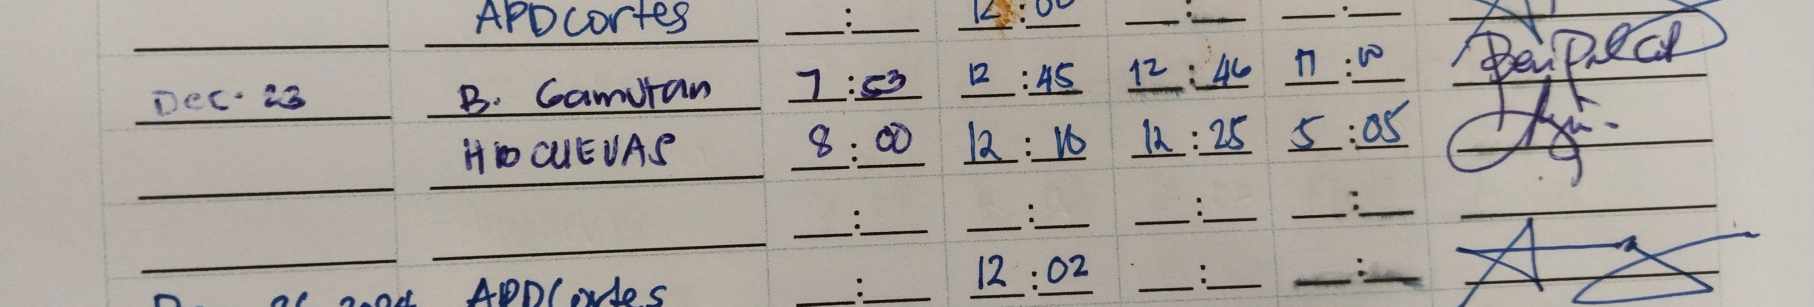 APDCortes __:__ 12:00 __:__ __:__
Dec. 23 B. Gamutan 7:53 12:45 12:46 11:00
CUEVAS 8:00 12:10 12:25 5:05
__:__ __:__ __:__ __:__
2024 APDCortes __:__ 12:02 __:__ __:__